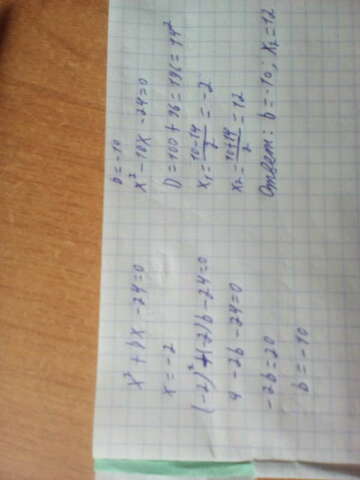 x² + bx - 24 = 0
x = -2
(-2)² + (-2)b - 24 = 0
4 - 2b - 24 = 0
-2b = 20
b = -10
b = -10
x² - 10x - 24 = 0
D = 100 + 96 = 196 = 14²
x₁ = (10-14)/2 = -2
x₂ = (10+14)/2 = 12
Ответ: b = -10; x₂ = 12